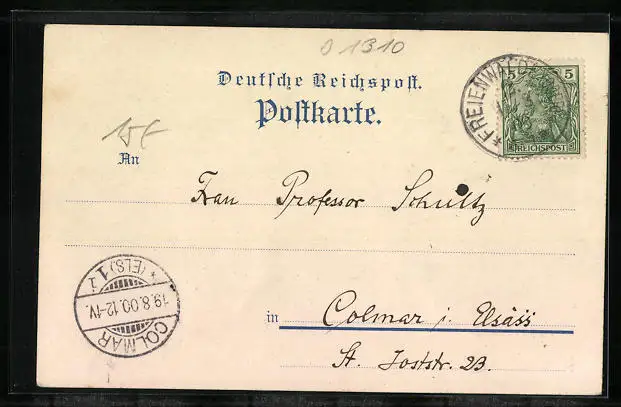 01310
Deutsche Reichspost.
Postkarte.
FREIENWALDE
5 5
REICHSPOST
An
Frau Professor Schultz
COLMAR
* (ELS) 1 *
19.8.00.12-1V.
in Colmar i. Elsäss
St. Joststr. 23.